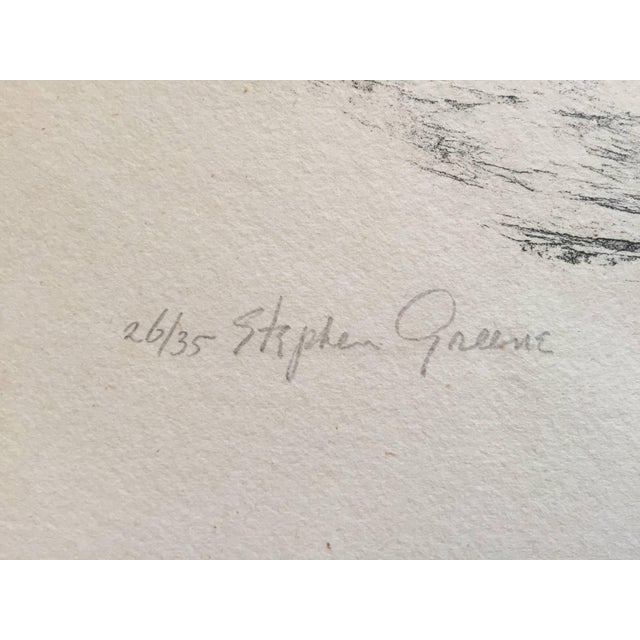 26/35 Stephen Greene